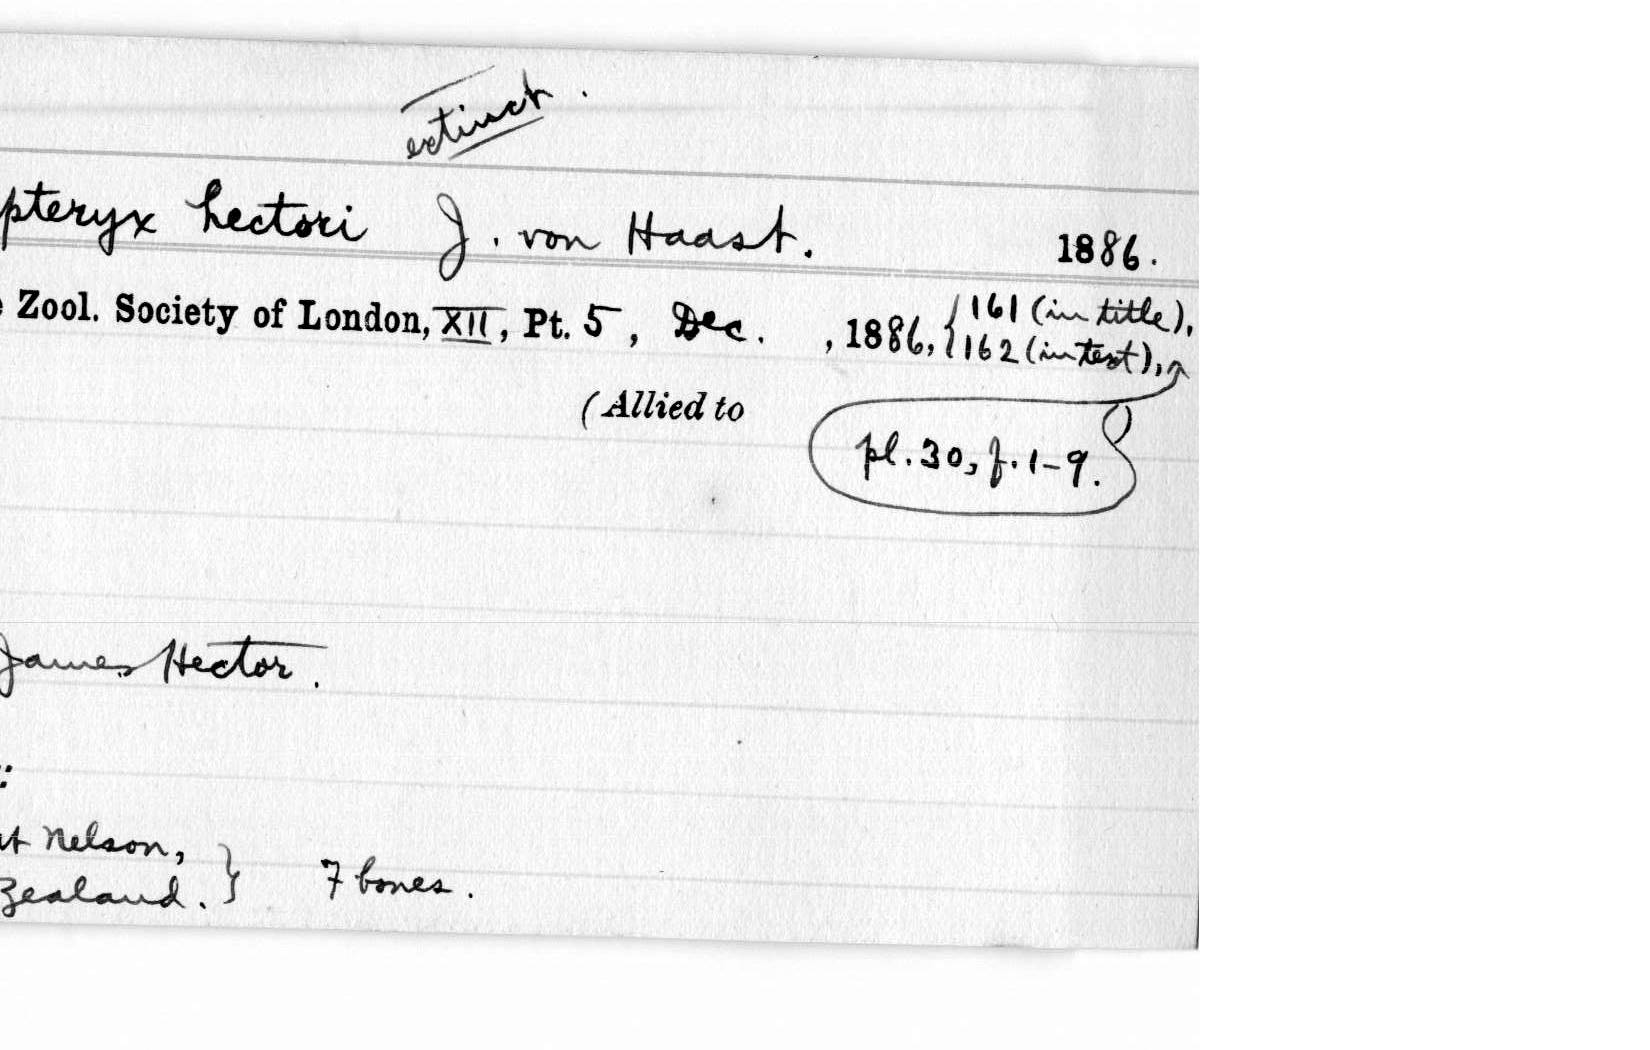 extinct.
pteryx hectori J. von Haast. 1886.
Zool. Society of London, XII, Pt. 5, Dec. , 1886, { 161 (in title),
162 (in text),
(Allied to
pl. 30, f. 1-9.
James Hector.
:
at Nelson,
Zealand. } 7 bones.